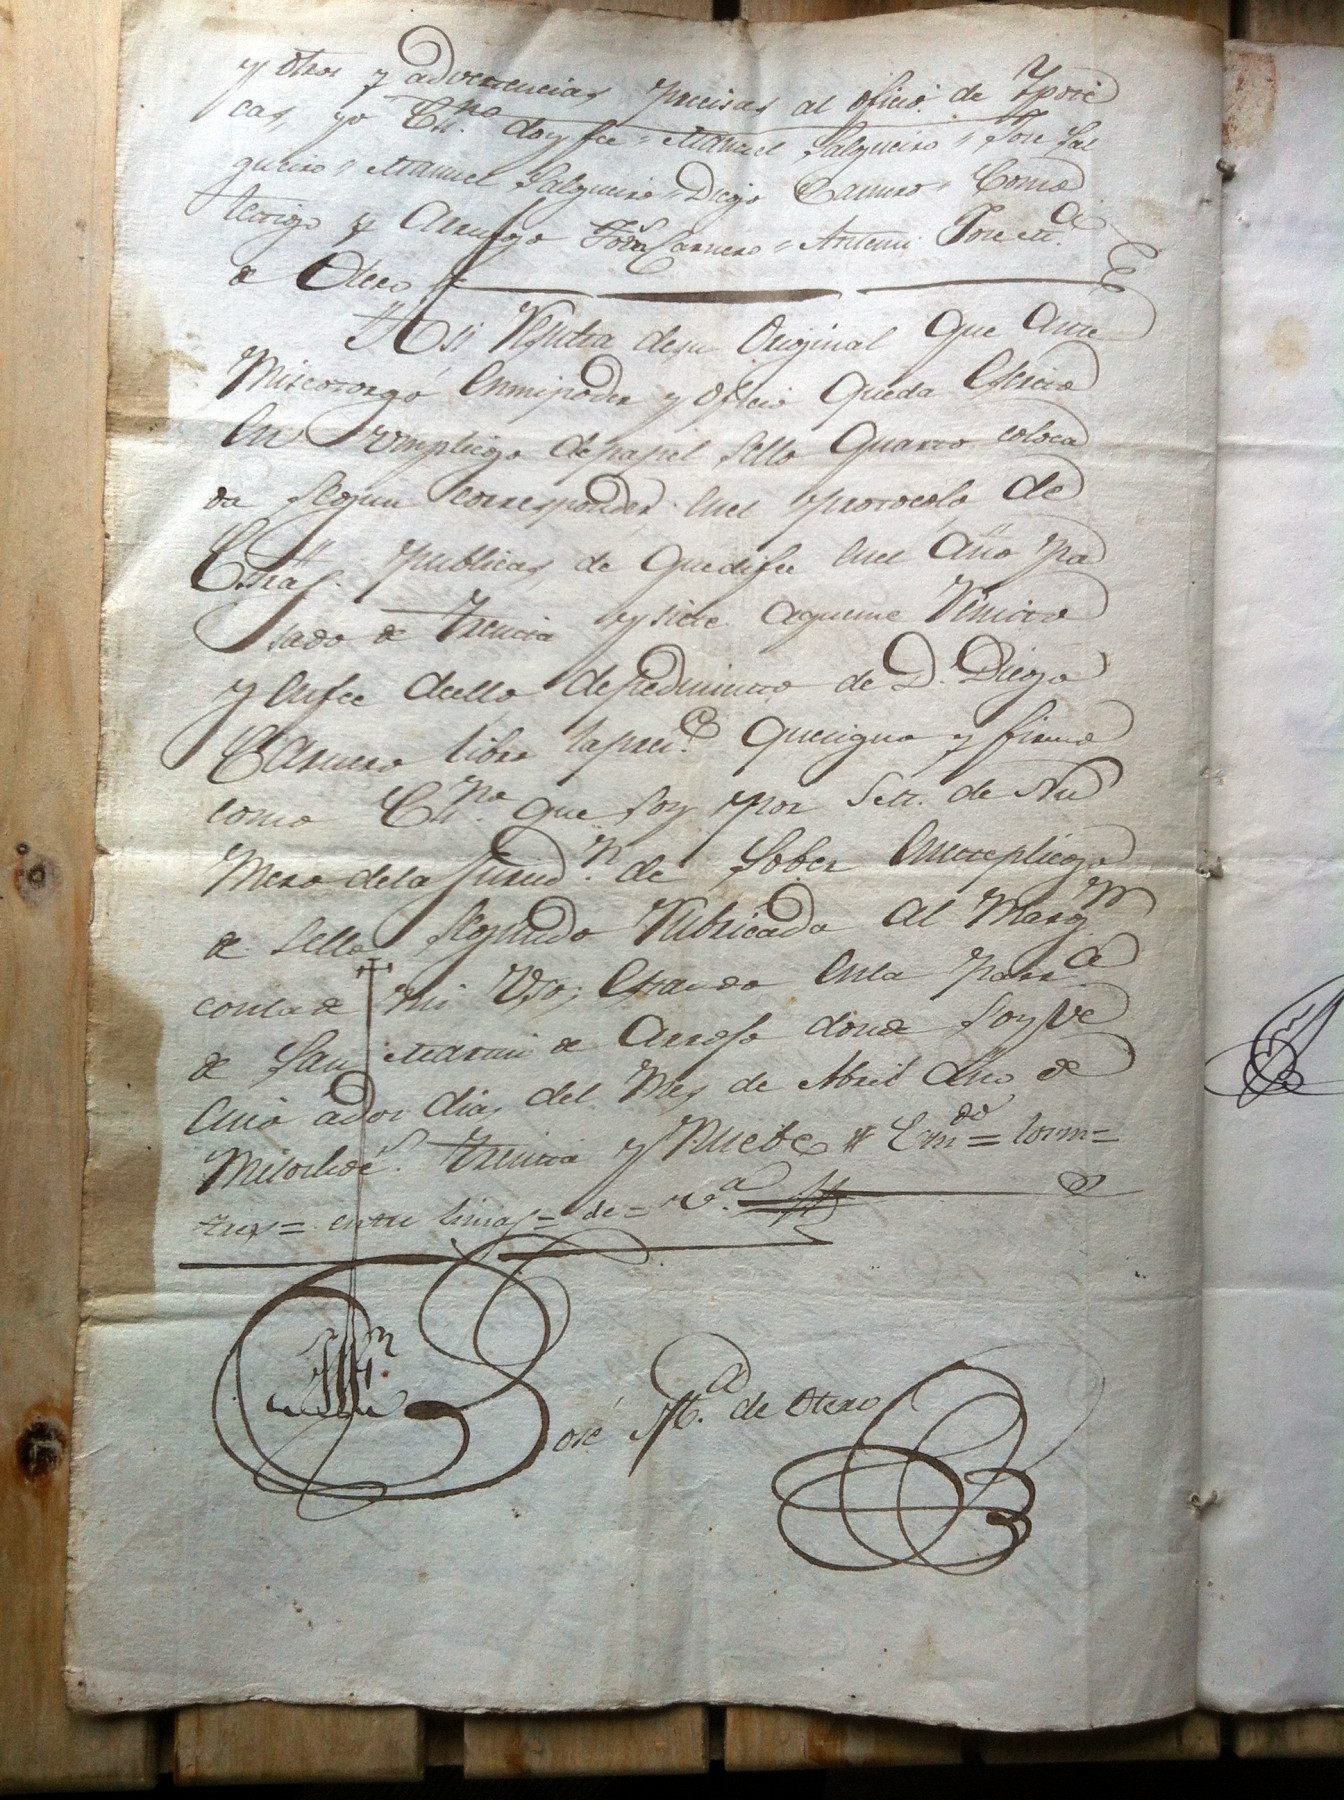 y otros y advertencias precisas al oficio de Ypote
cas, yo Esn.no doy fee = Manuel Salgueiro = Jose Sal
gueiro = Manuel Salgueiro = Diego Carnero = Como
testigo y Arruego Carnero = Antemi Jose M.a
de Otero
Asi Resulta desu Original que Ante
Miseotorgó Enmipoder y Oficio queda Escrito
En Unpliego depapel sello quarto coloca
da segun corresponden Enel protocolo de
Essras. publicas de quedife Enel Año pa
sado de treinta ysiete aqueme Remito
y Enfee deello depedimiento de D. Diego
Carnero libro lapres.te quesigno y firmo
como Esn.no que soy por S.M. de Nu
Mero dela Jurisd.n de Sober Enestepliego
de sello segundo Rubricado al Marg.n
conlade mi Uso; Estando Enla Parr.a
de San Martin de Arrojo donde soy Ve
cino ados dias del Mes de Abril Año de
Milochoc.s treinta y Nuebe # Em.do = torm=
tres= entre lineas= de= V.a
José M.a de Otero